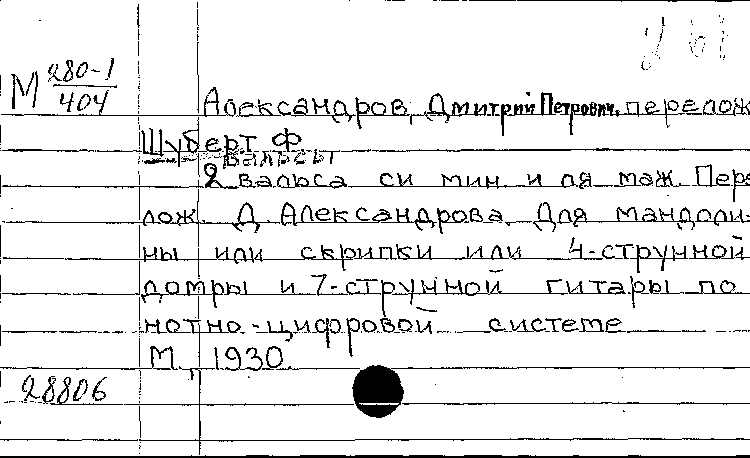 М 280-1/404
Александров, Дмитрий Петрович, перелож
Шуберт Ф
Вальсы
2 вальса си мин. и ля маж. Пере
лож. Д. Александрова. Для мандоли-
ны или скрипки или 4-струнной
домры и 7-струнной гитары по
нотно-цифровой системе
М., 1930.
28806